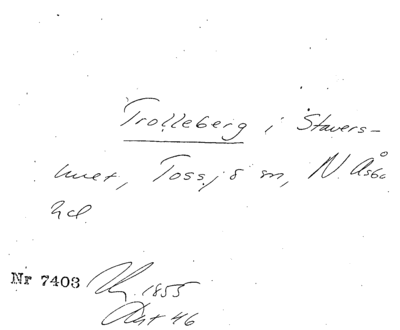 Trolleberg i Stavers-
huet, Tossjö sn, N. Åsbo
hd.
Nr 7403 1855
46